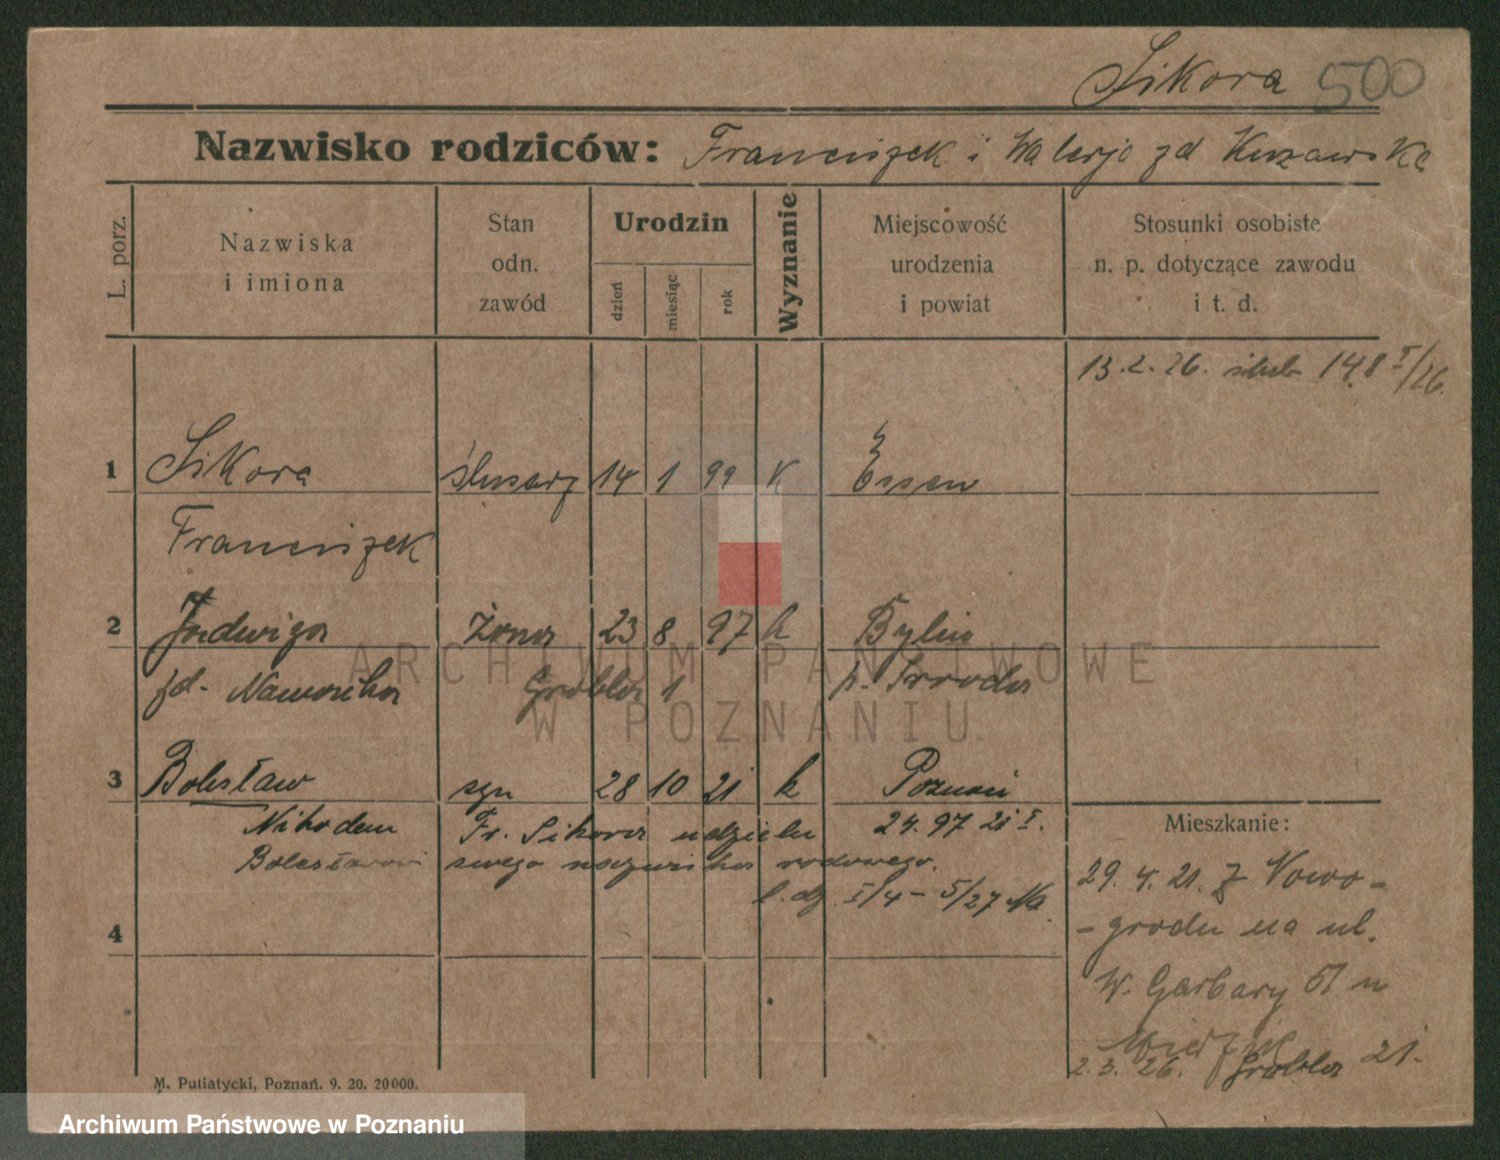 Sikora 500
Nazwisko rodziców: Franciszek i Walerja zd Kuzawska
L. porz.
Nazwiska
i imiona
Stan
odn.
zawód
Urodzin
dzień
miesiąc
rok
Wyznanie
Miejscowość
urodzenia
i powiat
Stosunki osobiste
n. p. dotyczące zawodu
i t. d.
13.2.26. 148 I/26.
1 Sikora ślusarz 14 1 99 K Essen
Franciszek
2 Jadwiga żona 23 8 97 k Bylin
zd. Grobla 1 p. Środa
3 Bolesław syn 28 10 21 k Poznań
Nikodem Fr. Sikora udziela 24.97 21 I.
Bolesławowi swego nazwiska rodowego.
l. dz. I/4 - 5/27 Na.
4
Mieszkanie:
29. 4. 21. z Nowo-
-grodu na ul.
W. Garbary 51 u
2. 3. 26. Grobla 21.
M. Putiatycki, Poznań. 9. 20. 20000.
ARCHIWUM PAŃSTWOWE
W POZNANIU
Archiwum Państwowe w Poznaniu